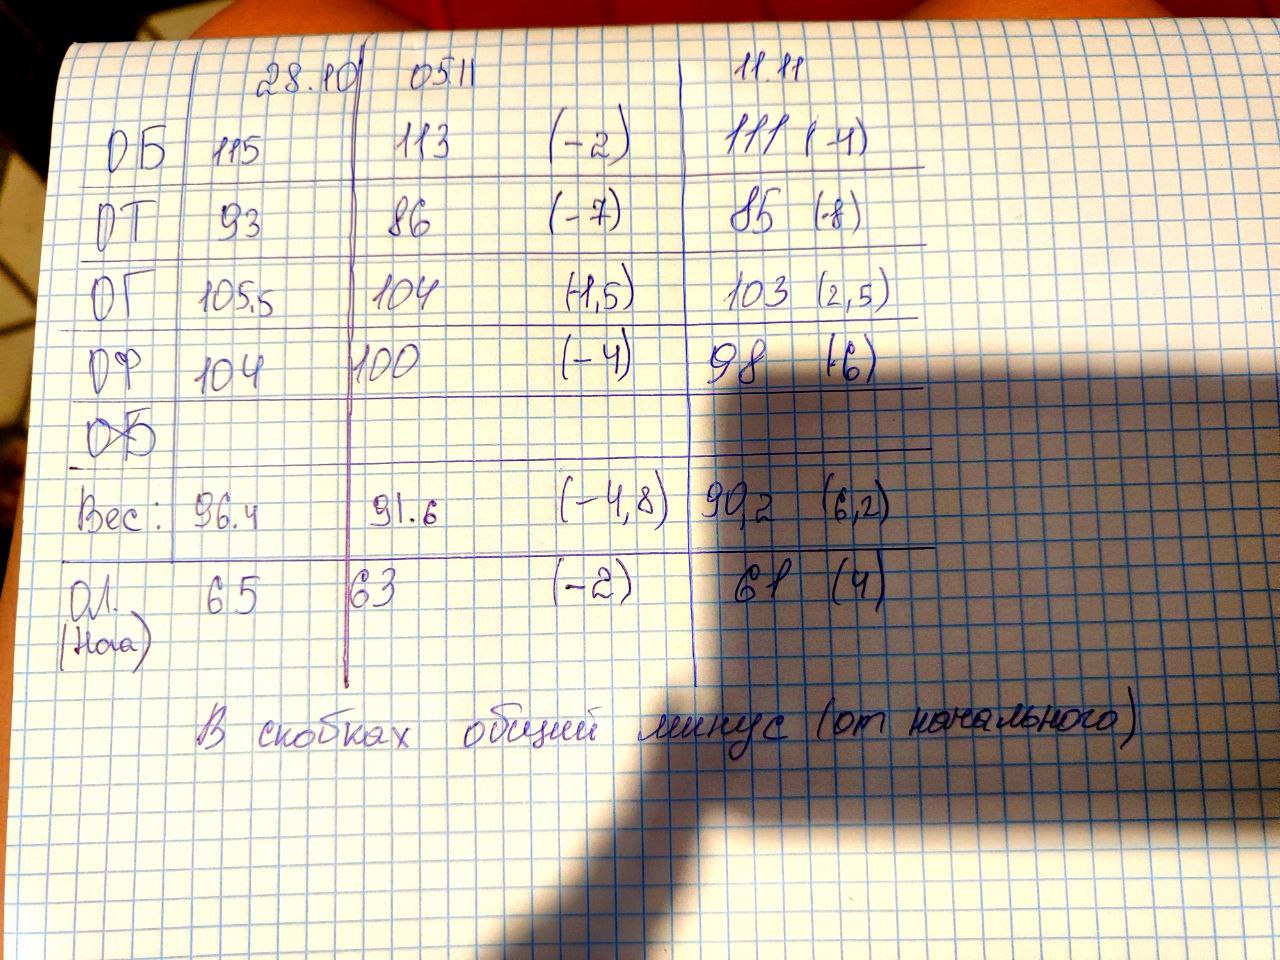 28.10 05.11 11.11
ОБ 115 113 (-2) 111 (-4)
ОТ 93 86 (-7) 85 (-8)
ОГ 105.5 104 (-1,5) 103 (2,5)
ОФ 104 100 (-4) 98 (-6)
ОБ
Вес: 96.4 91.6 (-4,8) 90,2 (6,2)
ОЛ. 65 63 (-2) 61 (4)
(Нога)
В скобках общий минус (от начального)